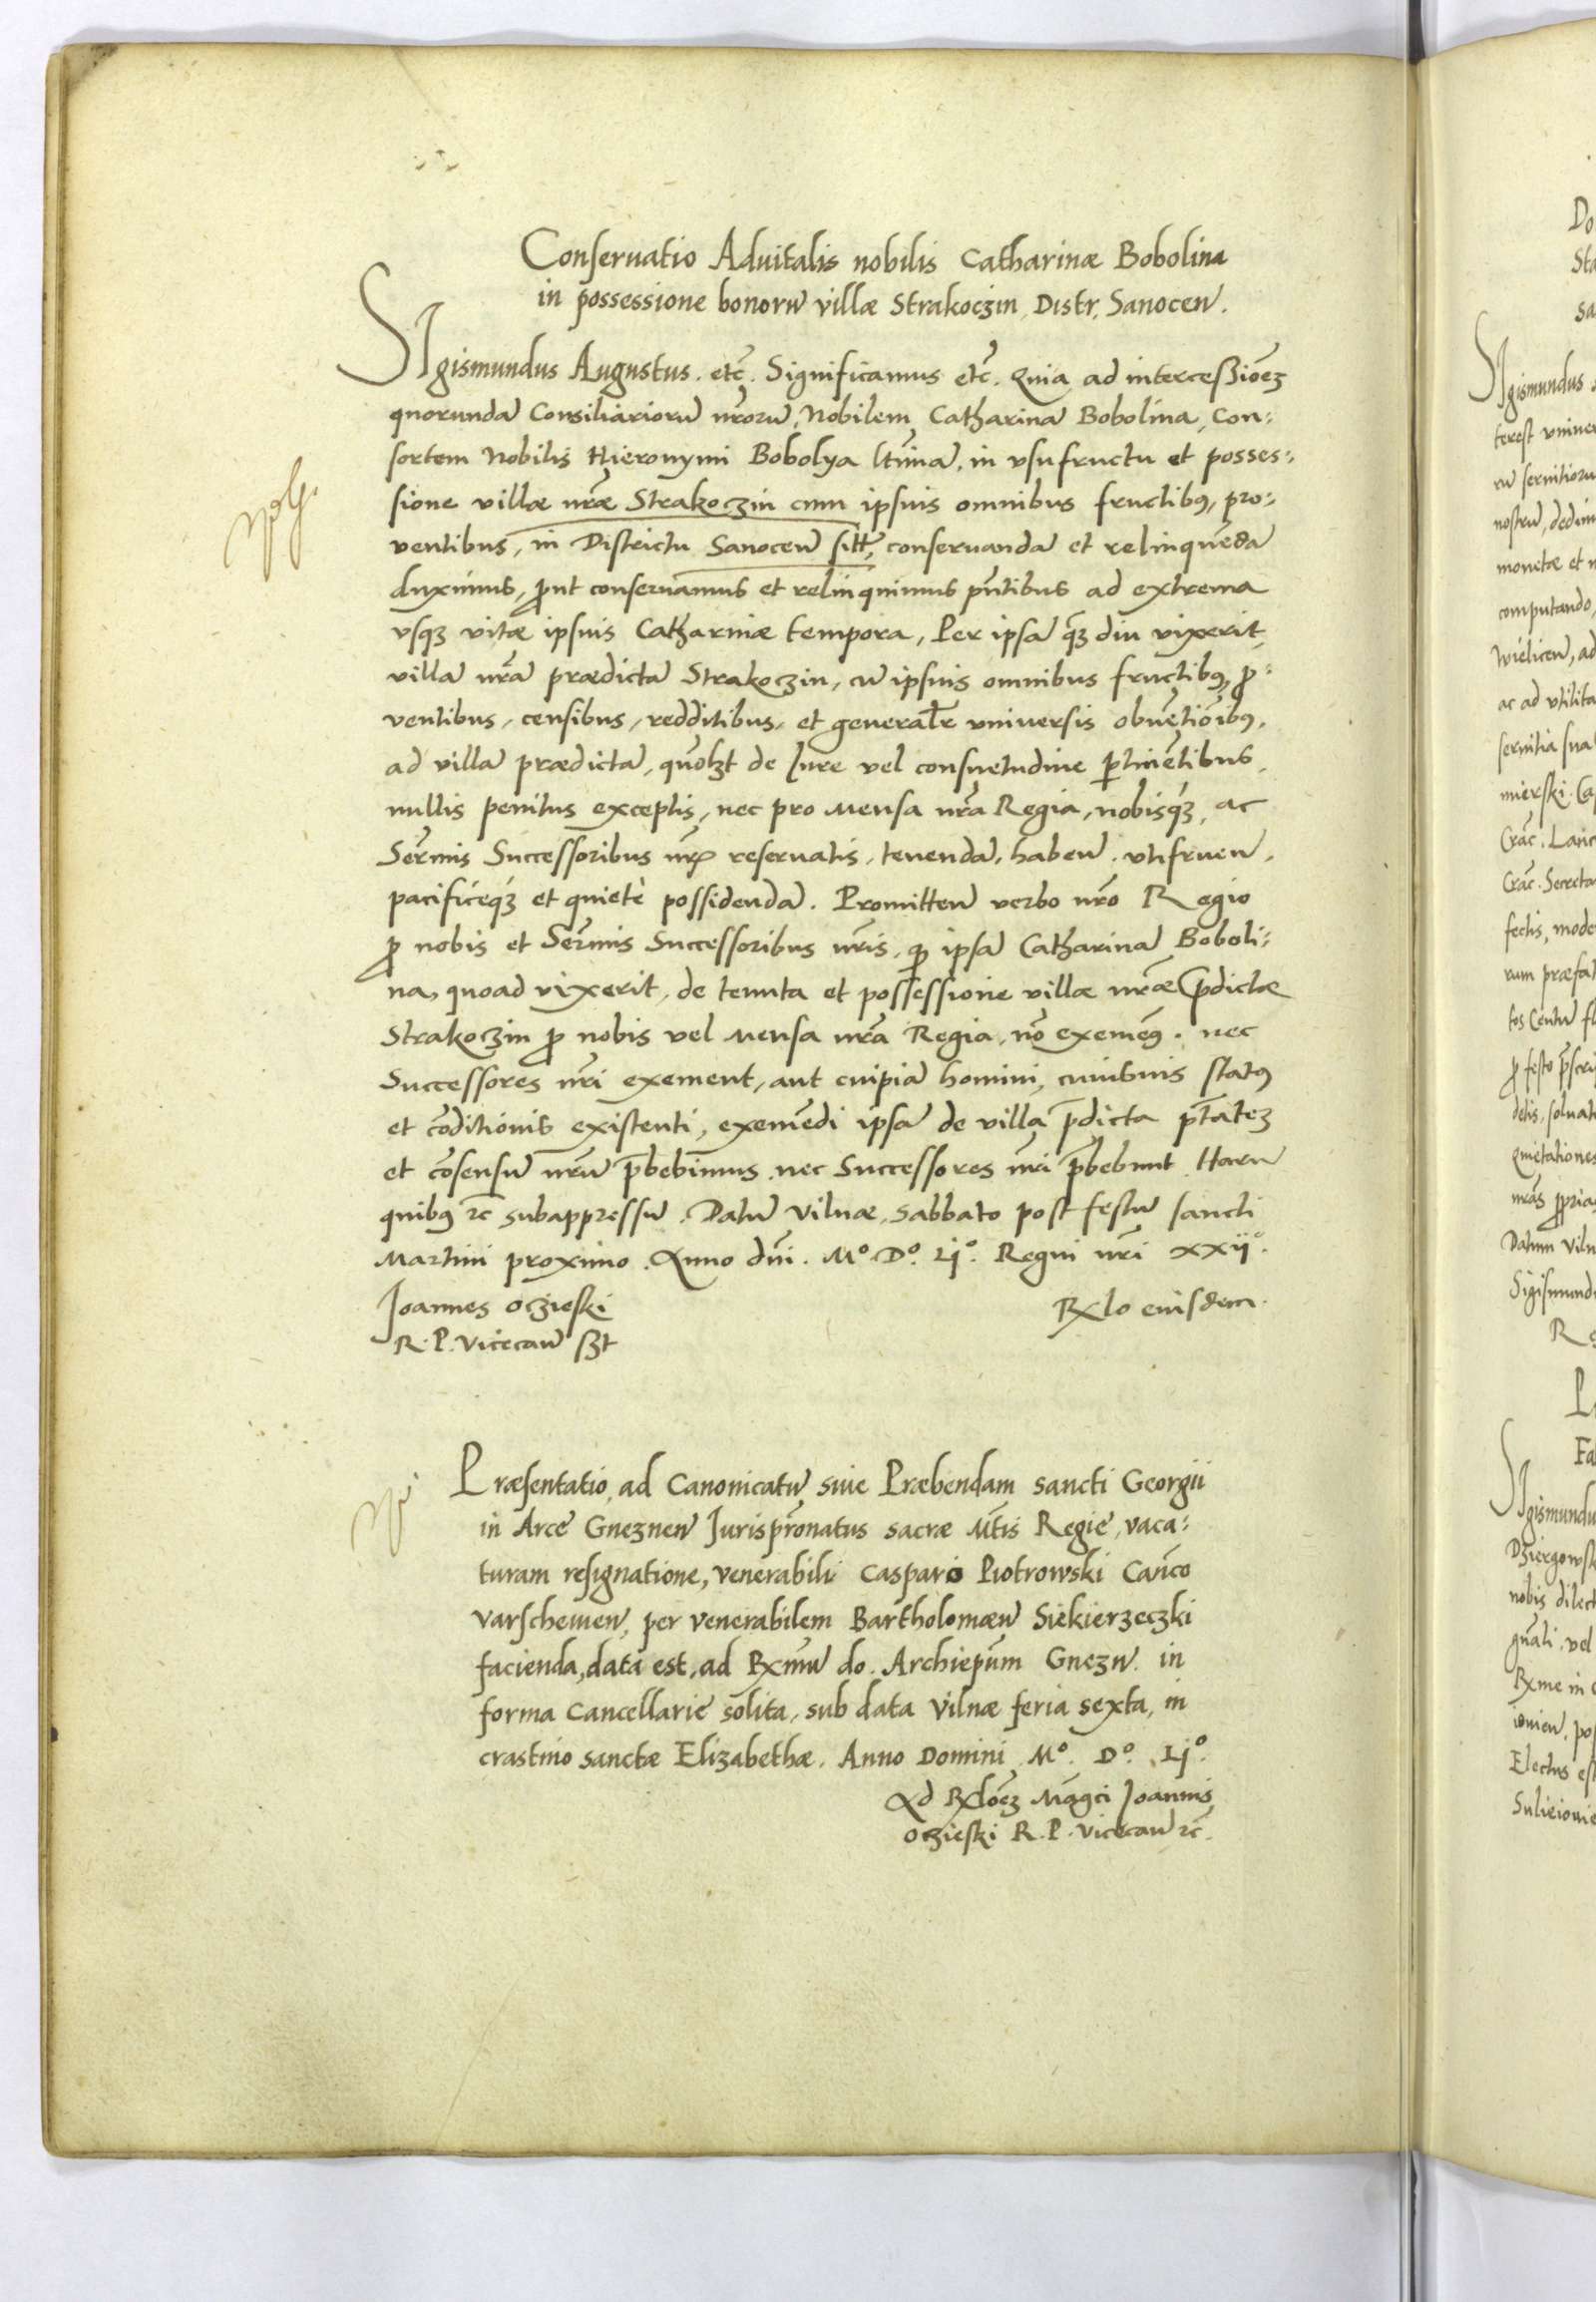 Conseruatio Aduitalis nobilis Catharinæ Bobolina
in possessione bonorū villæ Strakoczin Distr. Sanocen̄.
SIgismundus Augustus. etc̄. Significamus etc̄. Quia ad intercessiōēꝫ
quorundā Consiliariorū nr̄orū, Nobilem Catharinā Bobolina, Con:
sortem Nobilis Hieronymi Bobolya ltīmā, in vsufructu et posses:
sione villæ nr̄æ Strakoczin cum ipsuis omnibus fructibꝰ, pro:
ventibus, in Districtu Sanocen̄ sitt, conseruandā et relinquēdā
duximus, ꝓut conseruamus et relinquimus pn̄tibus ad extrema
vsqꝫ vitæ ipsuis Catharinæ tempora, Per ipsā qꝫ diu vixerit
villā nr̄ā prædictā Strakoczin, cū ipsuis omnibus fructibꝰ, ꝓ:
ventibus, censibus, redditibus, et generalr̄ vniuersis obuētiōibꝰ,
ad villā prædictā, quōlꝫt de Iure vel consuetudine ꝑtinētibus,
nullis penitus exceptis, nec pro Mensa nr̄a Regia, nobisqꝫ, ac
Ser̄mis Successoribus nr̄is reseruatis, tenendā, haben̄. vtifruen̄.
pacificéqꝫ et quietè possidendā. Promitten̄ verbo nr̄o Regio
ꝓ nobis et Ser̄mis Successoribus nr̄is, ꝙ ipsā Catharinā Boboli:
na, quoad vixerit, de tenuta et possessione villæ nr̄æ p̄dictæ
Strakoczin ꝓ nobis vel Mensa nr̄a Regia, nō exememꝰ. nec
Successores nr̄i exement, aut cuipiā homini, cuiusuis statꝰ
et cōditionis existenti, exemēdi ipsā de villa p̄dicta p̄tatēꝫ
et cōsensū nr̄ū p̄bebimus. nec Successores nr̄i p̄bebunt. Harū
quibꝰ ꝛc̄ subappressū. Datū Vilnæ, Sabbato post festū sancti
Martini proximo. Anno dn̄i. Mº. Dº. Ljº. Regni nr̄i xxijº.
Joannes Oczieski
Rx̄lo eiusdem.
R. P. Vicecan̄ sꝫt
Præsentatio, ad Canonicatū siue Præbendam sancti Georgii
in Arce Gneznen̄ Jurispr̄onatus sacræ Mt̄is Regie, vaca:
turam resignatione, venerabili Casparo Piotrowski Can̄co
varscheuien̄, per venerabilem Bartholomæū Siekierzeczki
facienda, data est, ad Rx̄mū do. Archiep̄um Gnezn̄. in
forma Cancellarie solita, sub data Vilnæ feria sexta, in
crastino sanctæ Elizabethæ. Anno Domini Mº. Dº. Ljº.
Ad Rx̄lōeꝫ Maḡci Joannis
Oczieski R. P. Vicecan̄ ꝛc̄.